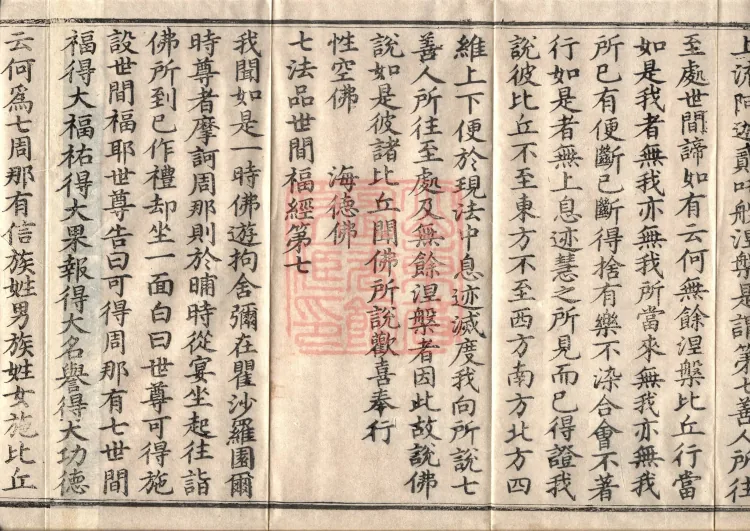 上流阿迦貳吒般涅槃是謂第七善人所往
至處世間諦如有云何無餘涅槃比丘行當
如是我者無我亦無我所當來無我亦無我
所已有便斷已斷得捨有樂不染合會不著
行如是者無上息迹慧之所見而已得證我
說彼比丘不至東方不至西方南方北方四
維上下便於現法中息迹滅度我向所說七
善人所往至處及無餘涅槃者因此故說佛
說如是彼諸比丘聞佛所說歡喜奉行
性空佛 海德佛
七法品世間福經第七
我聞如是一時佛遊拘舍彌在瞿沙羅園爾
時尊者摩訶周那則於晡時從宴坐起往詣
佛所到已作禮却坐一面白曰世尊可得施
設世間福耶世尊告曰可得周那有七世間
福得大福祐得大果報得大名譽得大功德
云何為七周那有信族姓男族姓女施比丘